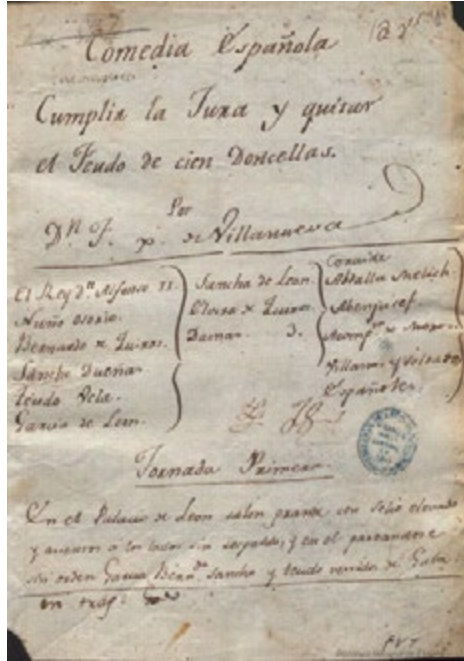 Comedia Española
Cumplir la Jura y quitar
el Feudo de cien Doncellas.
Por
Dn. J. de Villanueva
El Rey Dn. Alfonso II.
Nuño Osorio.
Bernardo de Quiros.
Sancho Dueñas
Teudo Vela.
Garcia de Leon.
Sancha de Leon
Elvira de Quiros.
Damas 3.
Abdalla Melich
Abenjucef
Villanos y Soldados
Españoles.
Jornada Primera
En el Palacio de Leon salon grande con Solio elevado
y asientos a los lados sin respaldo, y en el
sin orden Garcia Bern.do Sancho y teudo vestidos de Gala